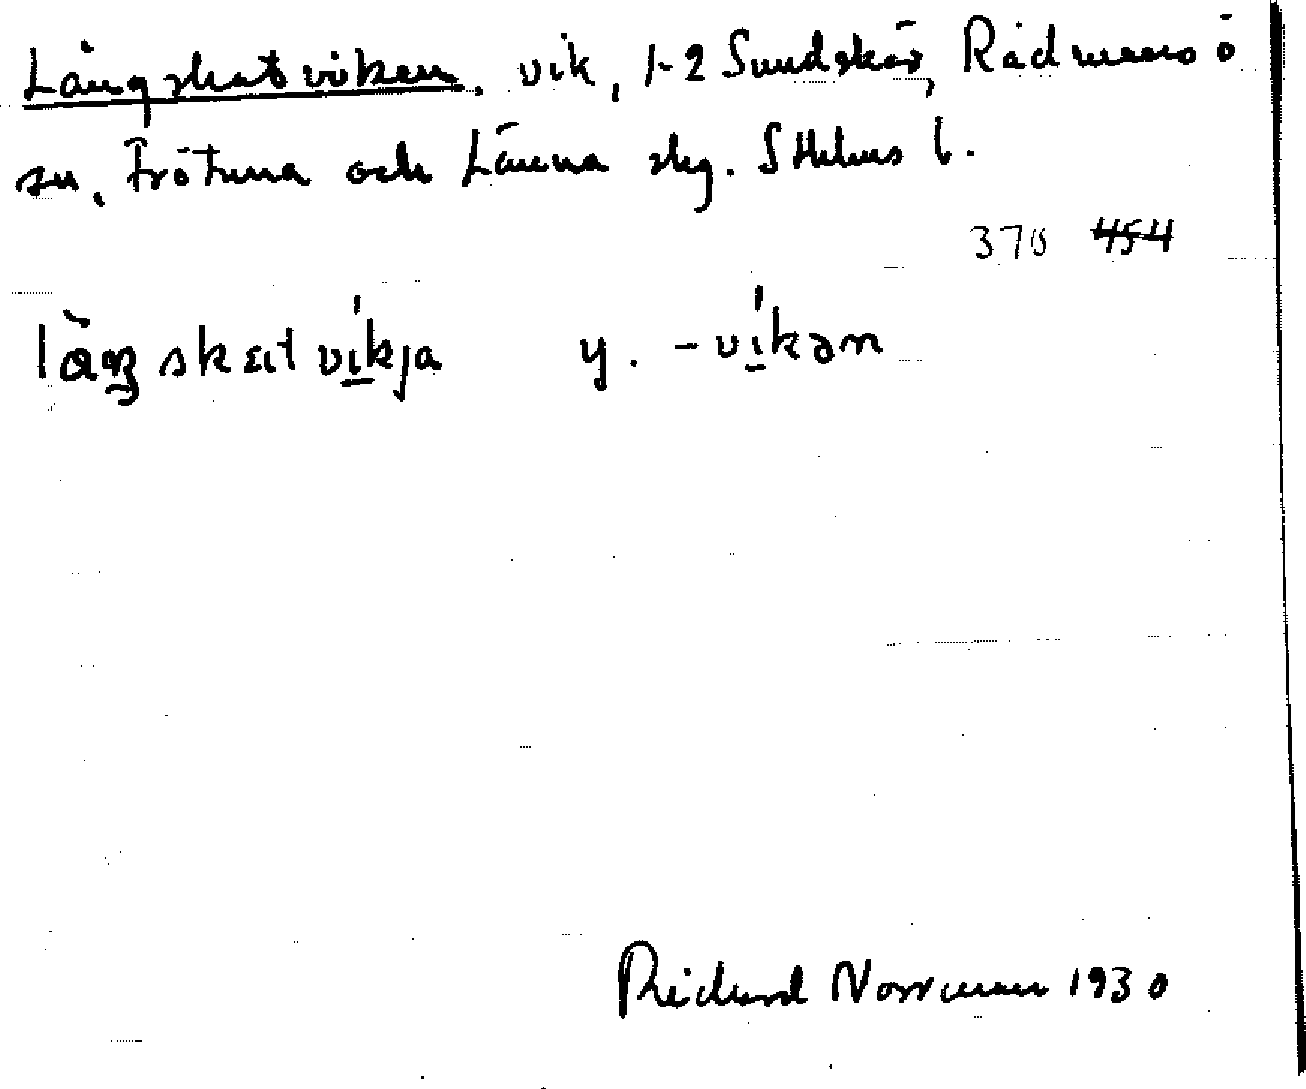 Långskatviken, vik, 1-2 Sundskär, Rådmansö
sn, Frötuna och Länna skg. Sthlms l.
370 454
långskatvíkja y. -víkən
Richard Norrman 1930